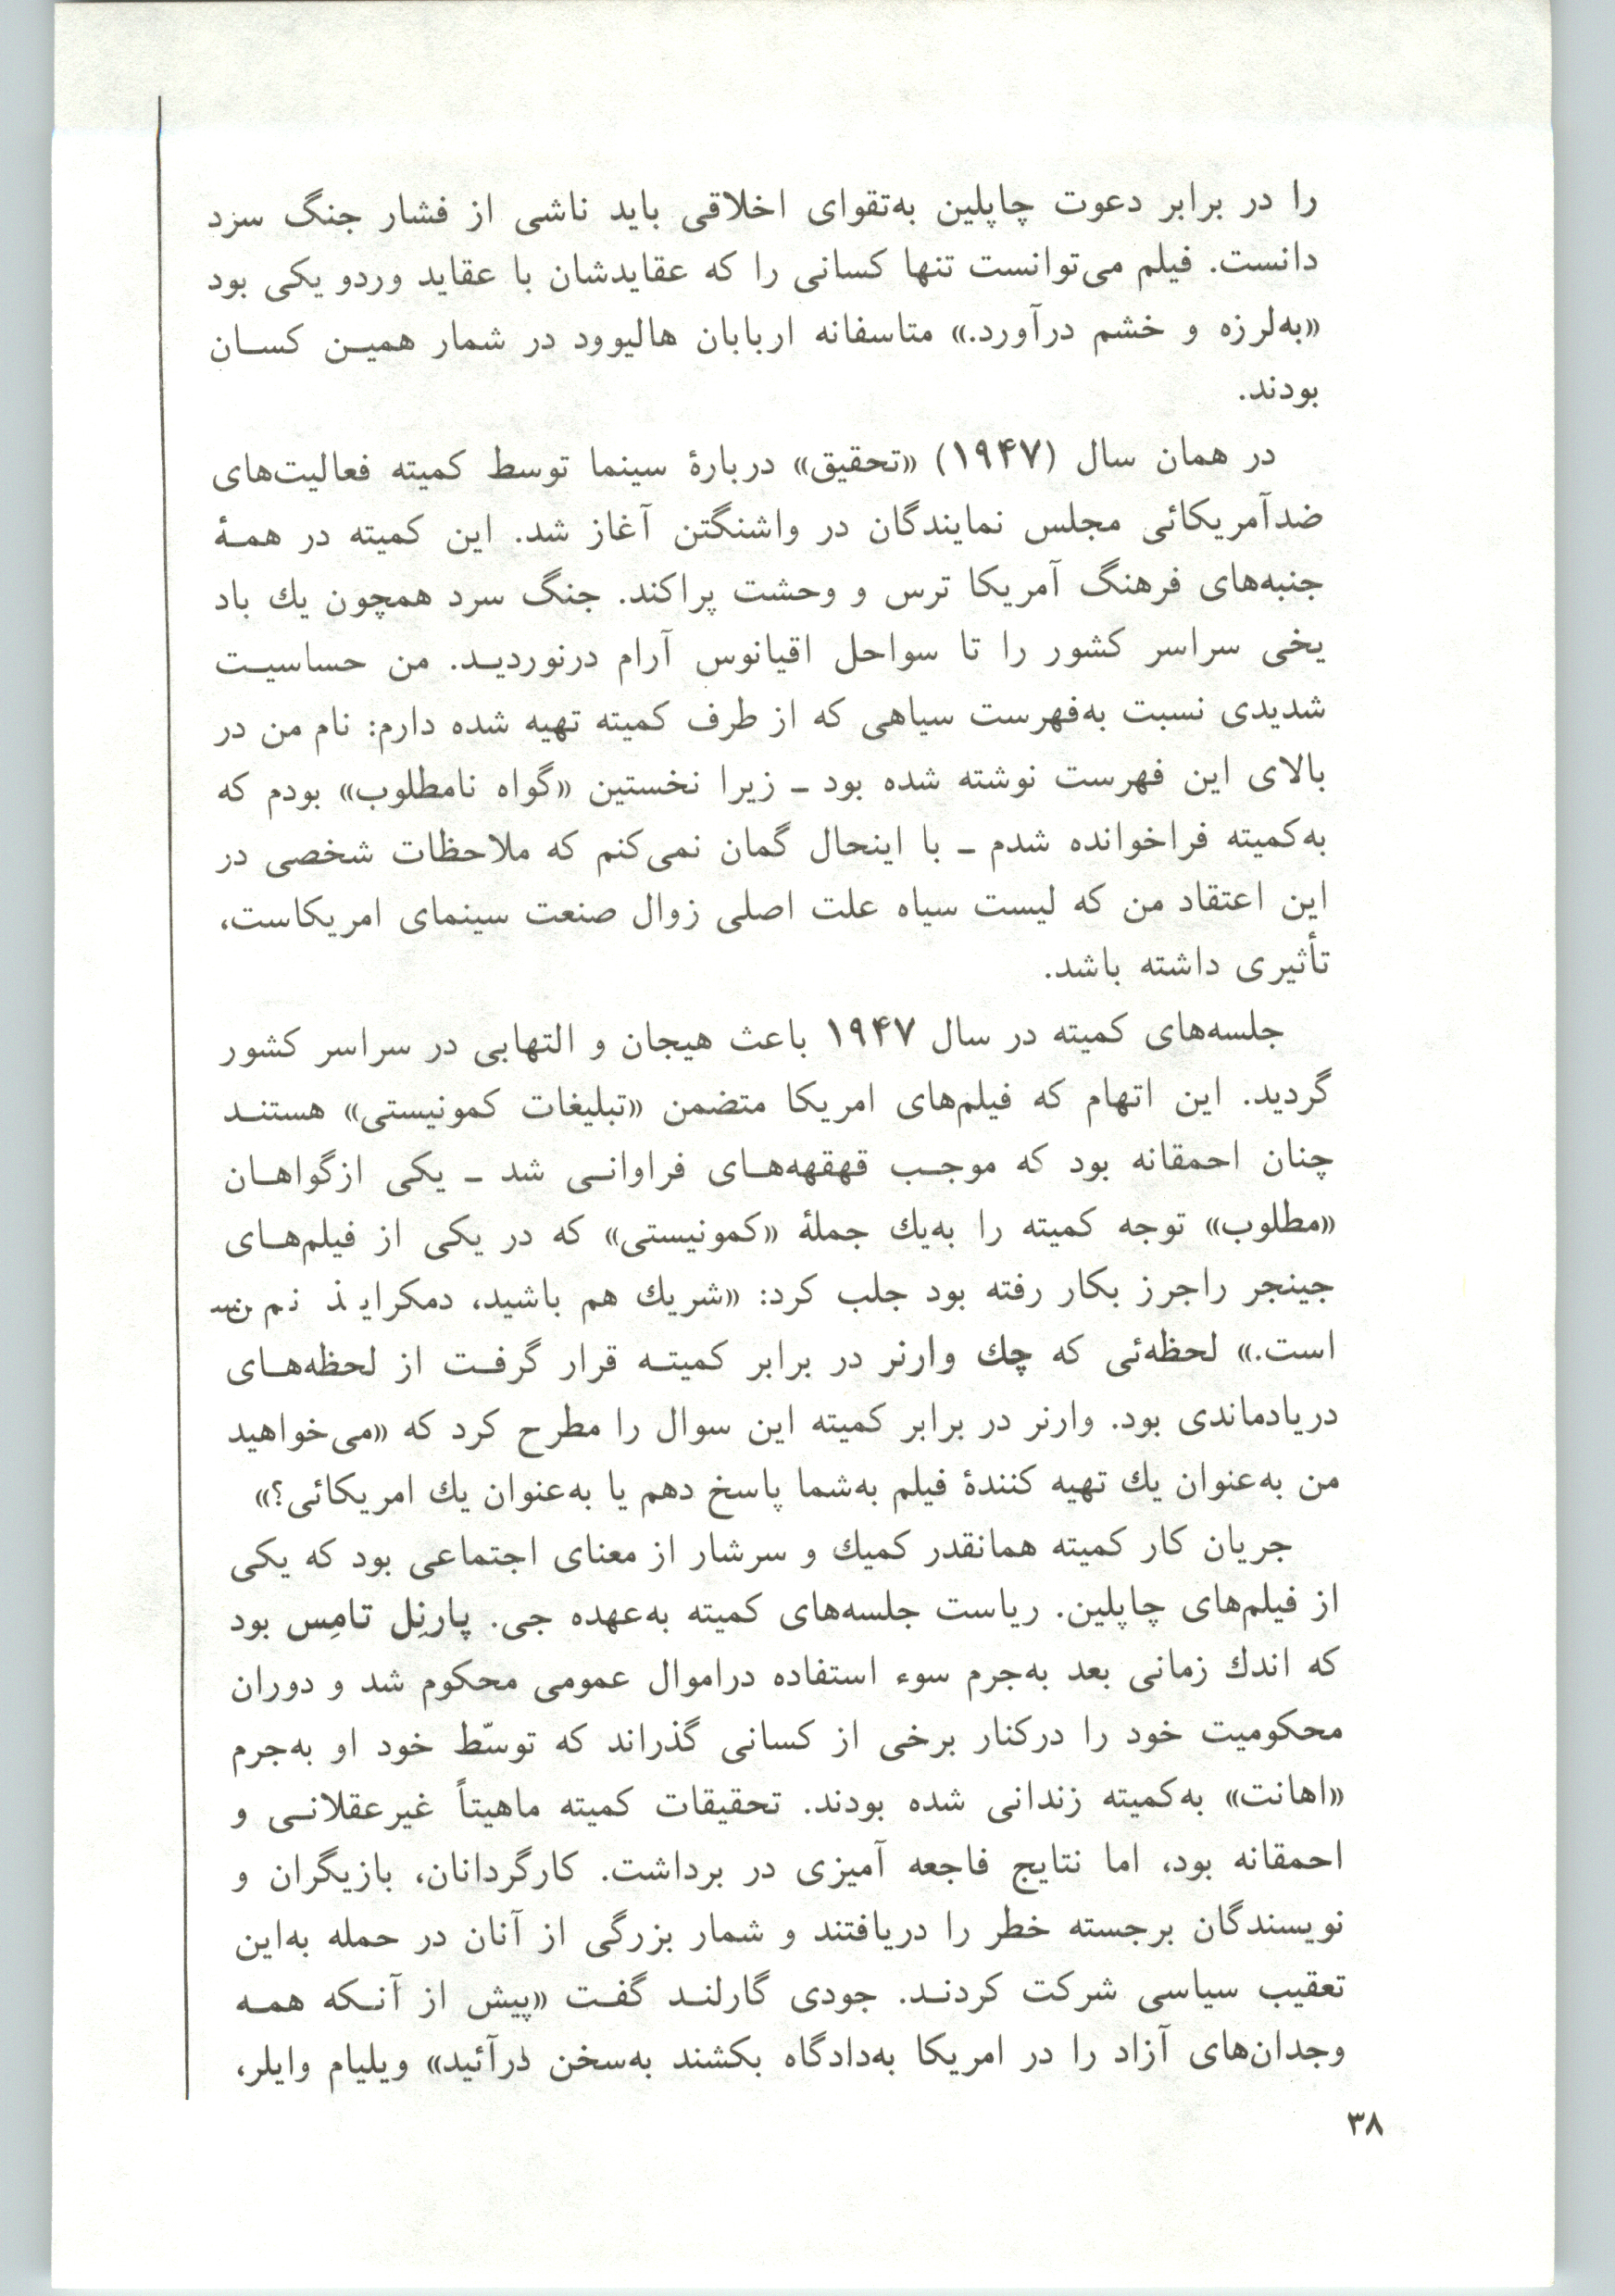 را در برابر دعوت چاپلین به‌تقوای اخلاقی باید ناشی از فشار جنگ سرد
دانست. فیلم می‌توانست تنها کسانی را که عقایدشان با عقاید وردو یکی بود
«به‌لرزه و خشم درآورد.» متاسفانه اربابان هالیوود در شمار همیـن کسـان
بودند.
در همان سال (۱۹۴۷) «تحقیق» دربارهٔ سینما توسط کمیته فعالیت‌های
ضدآمریکائی مجلس نمایندگان در واشنگتن آغاز شد. این کمیته در همـهٔ
جنبه‌های فرهنگ آمریکا ترس و وحشت پراکند. جنگ سرد همچون یك باد
یخی سراسر کشور را تا سواحل اقیانوس آرام درنوردیـد. من حساسیـت
شدیدی نسبت به‌فهرست سیاهی که از طرف کمیته تهیه شده دارم: نام من در
بالای این فهرست نوشته شده بود ـ زیرا نخستین «گواه نامطلوب» بودم که
به‌کمیته فراخوانده شدم ـ با اینحال گمان نمی‌کنم که ملاحظات شخصی در
این اعتقاد من که لیست سیاه علت اصلی زوال صنعت سینمای امریکاست،
تأثیری داشته باشد.
جلسه‌های کمیته در سال ۱۹۴۷ باعث هیجان و التهابی در سراسر کشور
گردید. این اتهام که فیلم‌های امریکا متضمن «تبلیغات کمونیستی» هستنـد
چنان احمقانه بود که موجـب قهقهه‌هـای فراوانـی شد ـ یکی ازگواهـان
«مطلوب» توجه کمیته را به‌یك جملهٔ «کمونیستی» که در یکی از فیلم‌هـای
جینجر راجرز بکار رفته بود جلب کرد: «شریك هم باشید،
است.» لحظه‌ئی که چك وارنر در برابر کمیتـه قرار گرفـت از لحظه‌هـای
دریادماندی بود. وارنر در برابر کمیته این سوال را مطرح کرد که «می‌خواهید
من به‌عنوان یك تهیه کنندهٔ فیلم به‌شما پاسخ دهم یا به‌عنوان یك امریکائی؟»
جریان کار کمیته همانقدر کمیك و سرشار از معنای اجتماعی بود که یکی
از فیلم‌های چاپلین. ریاست جلسه‌های کمیته به‌عهده جی. پارنِل تامِس بود
که اندك زمانی بعد به‌جرم سوء استفاده دراموال عمومی محکوم شد و دوران
محکومیت خود را درکنار برخی از کسانی گذراند که توسّط خود او به‌جرم
«اهانت» به‌کمیته زندانی شده بودند. تحقیقات کمیته ماهیتاً غیرعقلانـی و
احمقانه بود، اما نتایج فاجعه آمیزی در برداشت. کارگردانان، بازیگران و
نویسندگان برجسته خطر را دریافتند و شمار بزرگی از آنان در حمله به‌این
تعقیب سیاسی شرکت کردنـد. جودی گارلنـد گفـت «پیش از آنـکه همـه
وجدان‌های آزاد را در امریکا به‌دادگاه بکشند به‌سخن درآئید» ویلیام وایلر،
۳۸